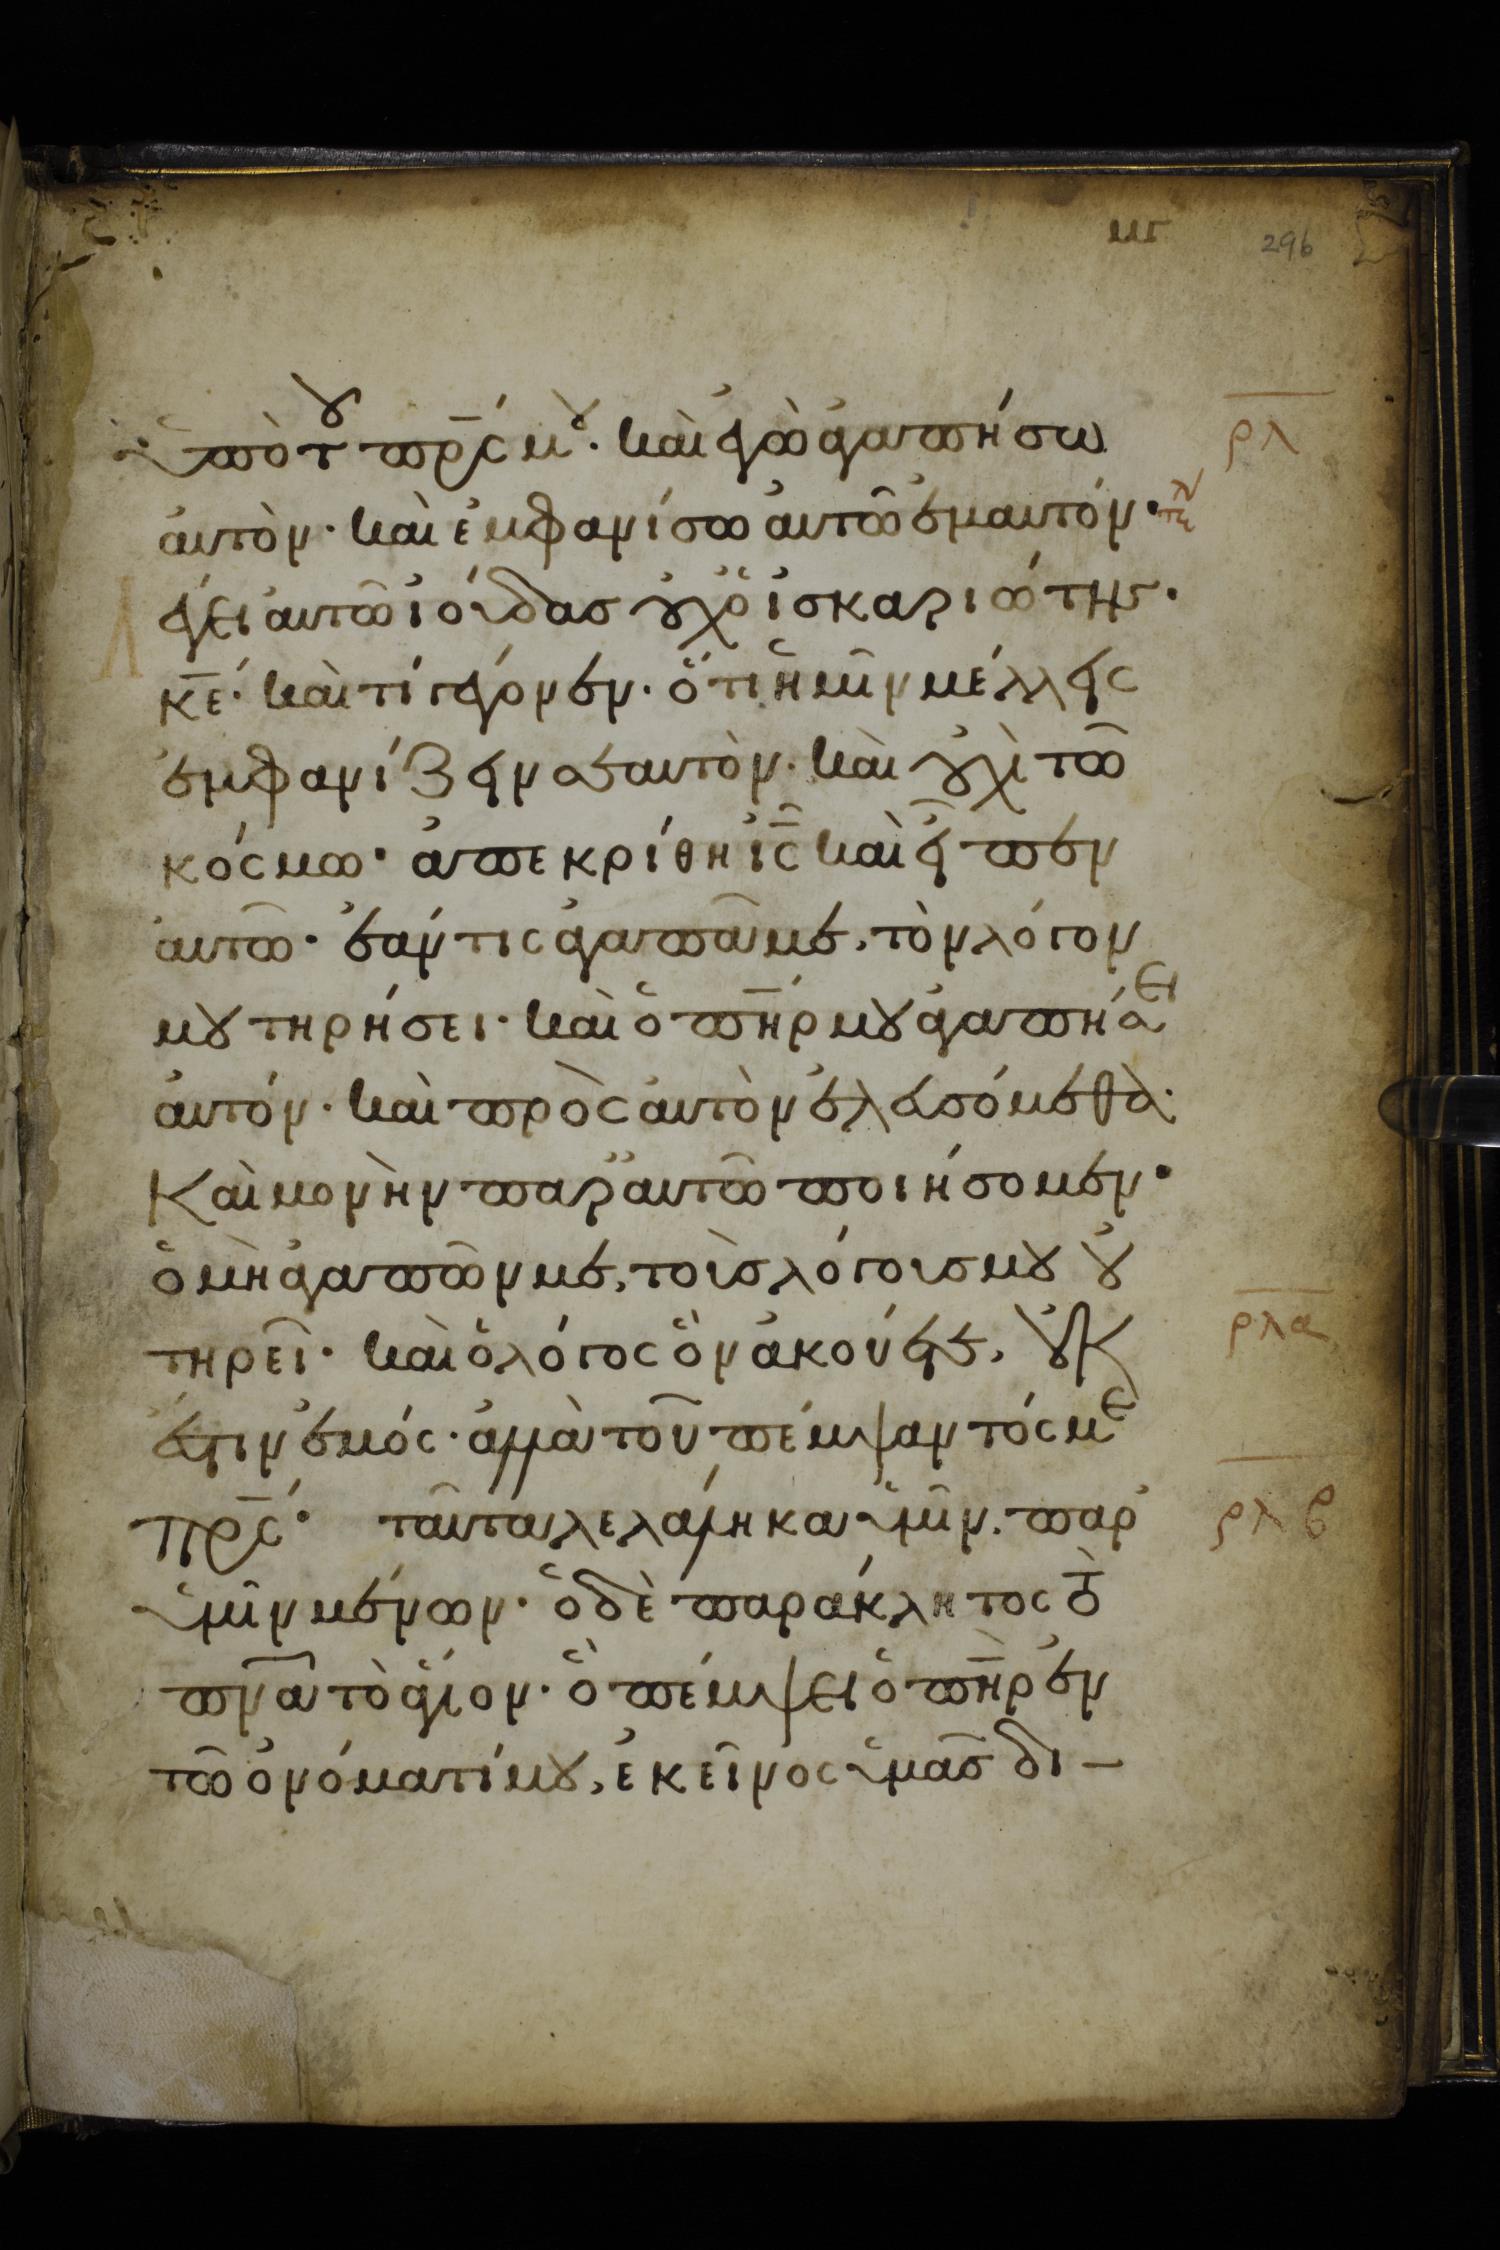 296
ὑπὸ τοῦ πρς μου· καὶ ἐγὼ ἀγαπήσω
ρλ
ἀυτὸν· καὶ ἐμφανίσω ἀυτῶ ἐμαυτόν·
λέγει ἀυτῶ ἰούδας οὐχ ὁ ἰσκαριώτης·
κε· καὶ τί γέγονεν· ὅτι ἡμῖν μέλλεις
ἐμφανίζειν σεαυτὸν· καὶ οὐχὶ τῶ
κόσμω· ἀπεκρίθη ις καὶ εἶπεν
ἀυτῶ· ἐάν τις ἀγαπᾶ με, τὸν λόγον
μου τηρήσει· καὶ ὁ πηρ μου ἀγαπήσει
ἀυτόν· καὶ πρὸς ἀυτὸν ἐλευσόμεθα·
Καὶ μονὴν παρ' ἀυτῶ ποιήσομεν·
ὁ μὴ ἀγαπῶν με, τοὺς λόγους μου οὐ
τηρεῖ· καὶ ὁ λόγος ὃν ἀκούετε, οὐκ
ρλα
ἔστιν ἐμός· ἀλλὰ τοῦ πέμψαντός με
πρς· ταῦτα λελάληκα ὑμῖν, παρ'
ρλβ
ὑμῖν μένων· ὁ δὲ παράκλητος τὸ
πνα τὸ ἅγιον· ὃ πέμψει ὁ πηρ ἐν
τῶ ὀνόματί μου, ἐκεῖνος ὑμᾶς δι-